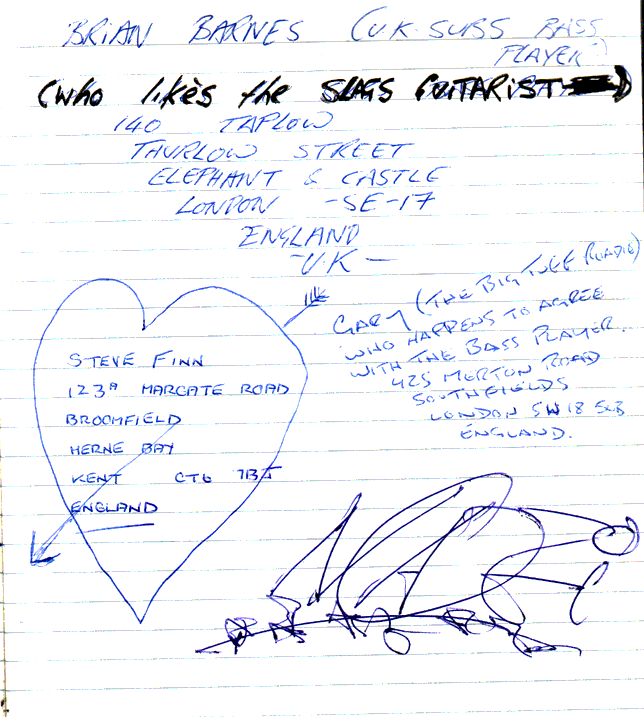 BRIAN BARNES (U.K. SUBS BASS
PLAYER)
(who likes the SLAGS GUITARIST)
140 TAPLOW
THURLOW STREET
ELEPHANT & CASTLE
LONDON -SE-17
ENGLAND
-U.K-
GARY (THE BIG TUFF ROADIE)
WHO HAPPENS TO AGREE
WITH THE BASS PLAYER...
425 MERTON ROAD
SOUTHFIELDS
LONDON SW18 5LB
ENGLAND.
STEVE FINN
123A MARGATE ROAD
BROOMFIELD
HERNE BAY
KENT CT6 7BJ
ENGLAND